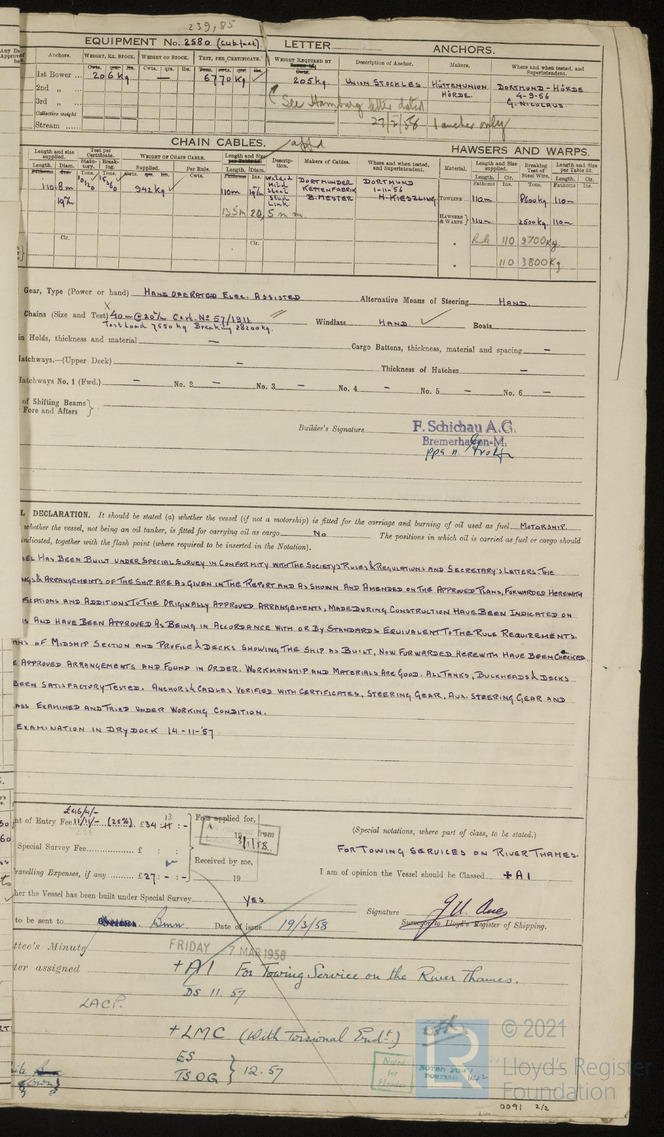 239,85
EQUIPMENT No. 2580 (Cub.feet) LETTER ANCHORS.
Anchors. WEIGHT, EX. STOCK. WEIGHT OF STOCK. TEST, PER CERTIFICATE. WEIGHT REQUIRED BY Description of Anchor. Makers. Where and when tested, and Superintendent.
1st Bower 206 kg — 6770 kg 205 kg Union Stockless Hüttenunion Hörde Dortmund-Hörde
2nd " 4-9-56
3rd " See Hamburg letter dated G. Nicolaus
Collective weight
Stream 27/2/58 1 anchor only
CHAIN CABLES. HAWSERS AND WARPS.
Length and size supplied. Test per Certificate. WEIGHT OF CHAIN CABLE. Length and Size Description. Makers of Cables. Where and when tested, and Superintendent. Material. Length and Size supplied. Breaking Test of Steel Wire. Length and Size per Table 53.
Length. Diam. Statutory. Breaking. Supplied. Per Rule. Length. Diam. Length. Cir. Length. Cir.
110.8m 942 kg 110m 19 Welded Mild Steel Stud Link Dortmunder Kettenfabrik B. Mester Dortmund 1-11-56 H. Kieszling TOWLINE 110m 8600 kg 110m
135m 20,5 mm. HAWSERS & WARPS 110m 2500 kg 110m
Rule 110 9700 kg
110 3800 kg
Gear, Type (Power or hand) Hand operated Elec. Assisted Alternative Means of Steering Hand.
Chains (Size and Test) 40m @ 20 Cert. No 57/1311 Windlass Hand Boats —
Test Load 7550 kg Breaking 28200 kg.
in Holds, thickness and material — Cargo Battens, thickness, material and spacing —
atchways.—(Upper Deck) — Thickness of Hatches —
atchways No. 1 (Fwd.) — No. 2 — No. 3 — No. 4 — No. 5 — No. 6 —
of Shifting Beams
Fore and Afters
Builder's Signature F. Schichau A.G.
Bremerhaven-M.
ppa
L DECLARATION. It should be stated (a) whether the vessel (if not a motorship) is fitted for the carriage and burning of oil used as fuel Motorship.
whether the vessel, not being an oil tanker, is fitted for carrying oil as cargo No The positions in which oil is carried as fuel or cargo should
indicated, together with the flash point (where required to be inserted in the Notation).
el Has Been Built under Special Survey in Conformity with the Society's Rules & Regulations and Secretary's Letters. The
ngs & Arrangements of the Ship are as given in the Report and as Shown and Amended on the Approved Plans, Forwarded Herewith
ications and Additions to the Originally Approved Arrangements, Made During Construction Have Been Indicated on
s and Have Been Approved as Being in Accordance with or By Standards Equivalent to the Rule Requirements.
ans of Midship Section and Profile & Decks Showing the Ship as Built, Now Forwarded Herewith Have Been Checked
e Approved Arrangements and Found in Order. Workmanship and Materials are Good. All Tanks, Bulkheads & Decks
Been Satisfactory Tested. Anchors & Cables Verified with Certificates, Steering Gear, Aux. Steering Gear and
ass Examined and Tried under Working Condition.
Examination in Dry Dock 14-11-57
£46/4/-
nt of Entry Fee 11/11/- (25%) £34 : 13 : - Fees applied for,
Special Survey Fee £ : (Special notations, where part of class, to be stated.)
For Towing Services on River Thames
ravelling Expenses, if any £27 : - : - Received by me, 19 I am of opinion the Vessel should be Classed +A1
her the Vessel has been built under Special Survey Yes
Signature
to be sent to Bmn. Date of issue 19/3/58 Surveyor to Lloyd's Register of Shipping.
ttee's Minute FRIDAY 7 MAR 1958
ter assigned +A1 For Towing Service on the River Thames.
DS 11.57
LACP.
+LMC (With Torsional Endt.)
ES
TSOG } 12.57
Noted for Header
© 2021
Lloyd's Register
Foundation
0091 2/2